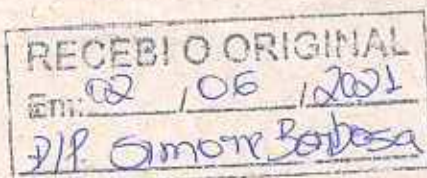 RECEBI O ORIGINAL
Em: 02 / 06 / 2021
D/P. Simone Barbosa